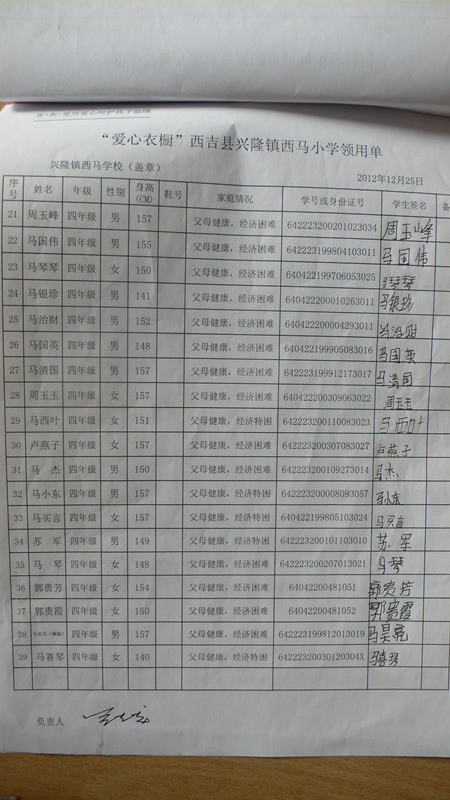 “爱心衣橱”西吉县兴隆镇西马小学领用单
兴隆镇西马学校（盖章） 2012年12月25日
序号 姓名 年级 性别 身高(CM) 鞋号 家庭情况 学号或身份证号 学生签名 备
21 周玉峰 四年级 男 157 父母健康，经济困难 642223200201023034 周玉峰
22 马国伟 四年级 男 155 父母健康，经济困难 642223199804103011 马国伟
23 马琴琴 四年级 女 150 父母健康，经济困难 640422199706053025 马琴琴
24 马银珍 四年级 男 141 父母健康，经济困难 642222200010263011 马银珍
25 马治财 四年级 男 152 父母健康，经济困难 642222200004293011
26 马国英 四年级 男 148 父母健康，经济困难 640422199905083016 马国英
27 马清国 四年级 男 157 父母健康，经济困难 642223199912173017 马清国
28 周玉玉 四年级 女 157 父母健康，经济困难 642222200309063022 周玉玉
29 马西叶 四年级 女 151 父母健康，经济特困 642223200110083023 马西叶
30 卢燕子 四年级 女 157 父母健康，经济困难 642223200307083027 卢燕子
31 马杰 四年级 男 150 父母健康，经济困难 642223200109273014 马杰
32 马小东 四年级 男 157 父母健康，经济特困 642223200008093057 马小东
33 马买言 四年级 女 157 父母健康，经济特困 642221199805103024 马买言
34 苏军 四年级 男 149 父母健康，经济特困 642223200101103010 苏军
35 马琴 四年级 女 148 父母健康，经济困难 642223200207013021 马琴
36 郭贵芳 四年级 女 154 父母健康，经济困难 64042200481051 郭贵芳
37 郭贵霞 四年级 女 150 父母健康，经济困难 64042200481052 郭贵霞
38 四年级 男 157 父母健康，经济困难 642223199812013019
39 马喜琴 四年级 女 140 父母健康，经济特困 64222320030120304X 马喜琴
负责人